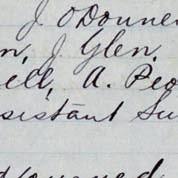 J O'Donne
n, J. Glen.
ell, A. Pea
sistant Su